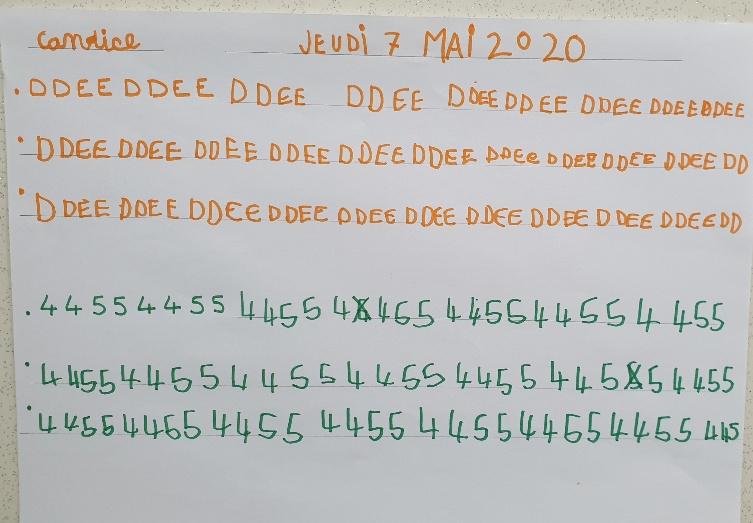 Candice JEUDI 7 MAI 2020
. DDEE DDEE DDEE DDEE DDEE DDEE DDEE DDEE DDEE
. DDEE DDEE DDEE DDEE DDEE DDEE DDEe DDEE DDEE DDEE DD
. DDEE DDEE DDEE DDEE DDEE DDEE DDEE DDEE DDEE DDEE DD
. 4 4 5 5 4 4 5 5 4 4 5 5 4 4 5 5 4 4 5 5 4 4 5 5 4 4 5 5
. 4 4 5 5 4 4 5 5 4 4 5 5 4 4 5 5 4 4 5 5 4 4 5 5 4 4 5 5
. 4 4 5 5 4 4 5 5 4 4 5 5 4 4 5 5 4 4 5 5 4 4 5 5 4 4 5 5 4 4 5